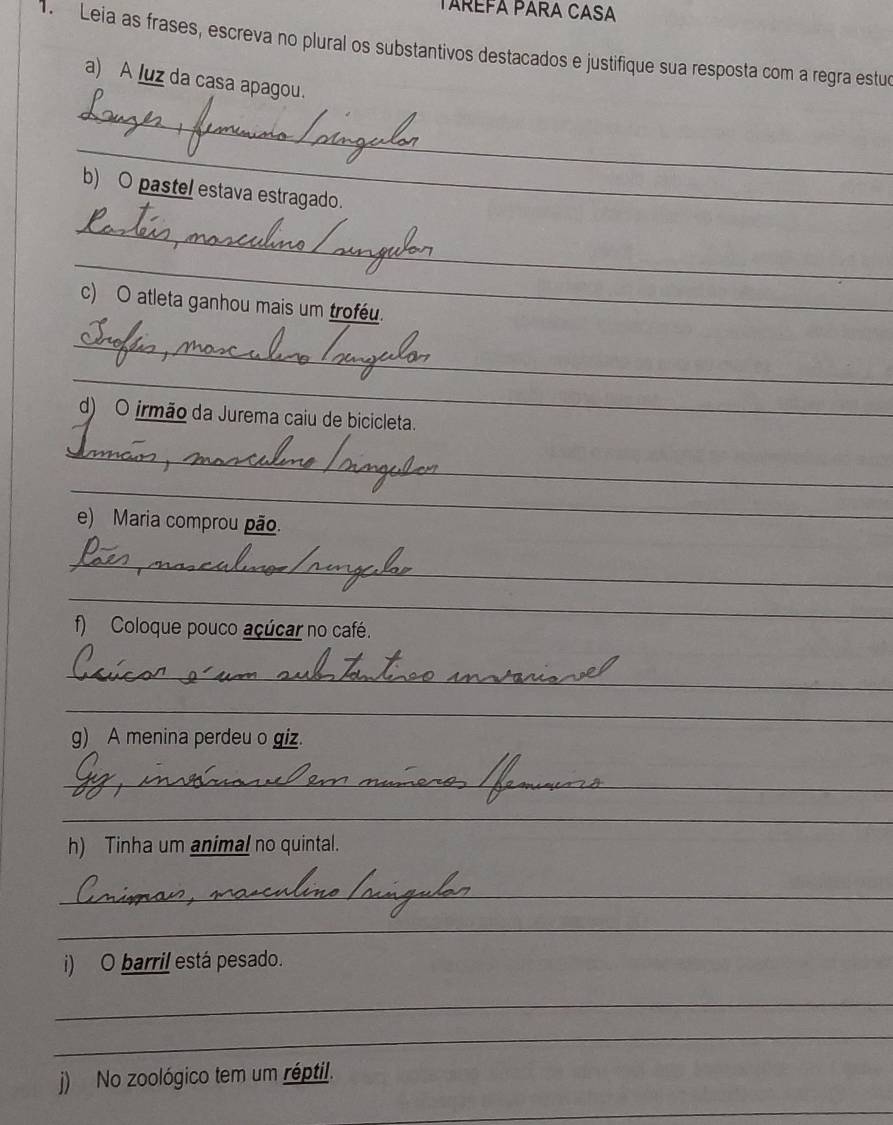 TAREFA PARA CASA
1. Leia as frases, escreva no plural os substantivos destacados e justifique sua resposta com a regra estud
a) A luz da casa apagou.
femenino / singular
b) O pastel estava estragado.
Pasteis, masculino / singular
c) O atleta ganhou mais um troféu.
Trofeis, masculino / singular
d) O irmão da Jurema caiu de bicicleta.
Irmãos, masculino / singular
e) Maria comprou pão.
Pães, masculino / singular
f) Coloque pouco açúcar no café.
é um substantivo invariavel
g) A menina perdeu o giz.
invariavel em número / femenino
h) Tinha um animal no quintal.
Animais, masculino / singular
i) O barril está pesado.
j) No zoológico tem um réptil.